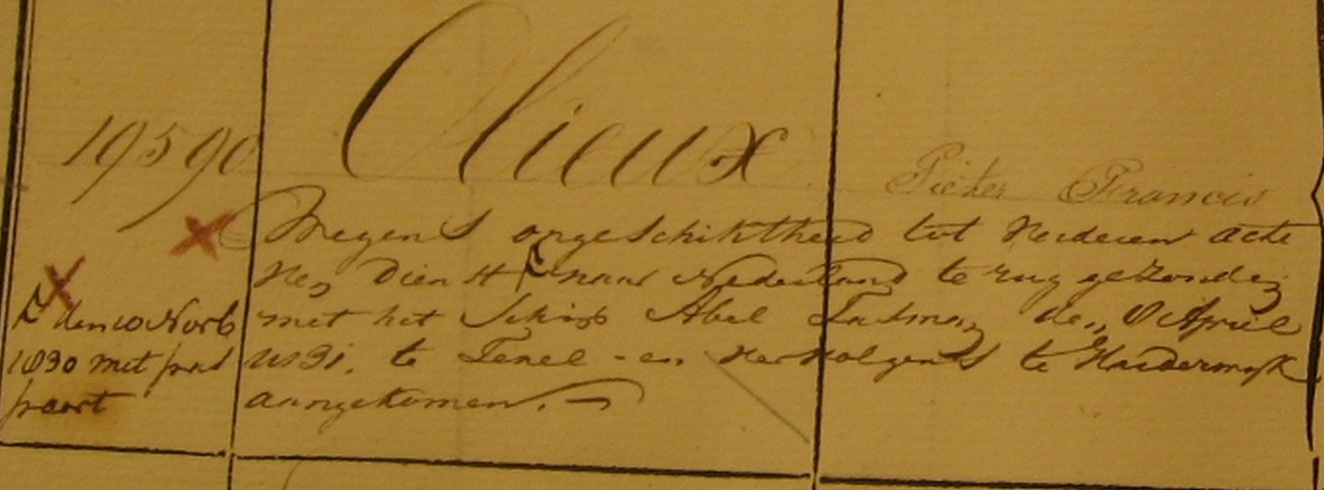 19590 Olieux Pieter Francis
Wegens ongeschiktheid tot verderen acti
ven dienst naar Nederland te rug gezonden
met het Schip Abel Tasman den 8 April
1831. te Texel en vervolgens te Harderwyk
aangekomen.
den 10 Novb
1830 met pas
poort